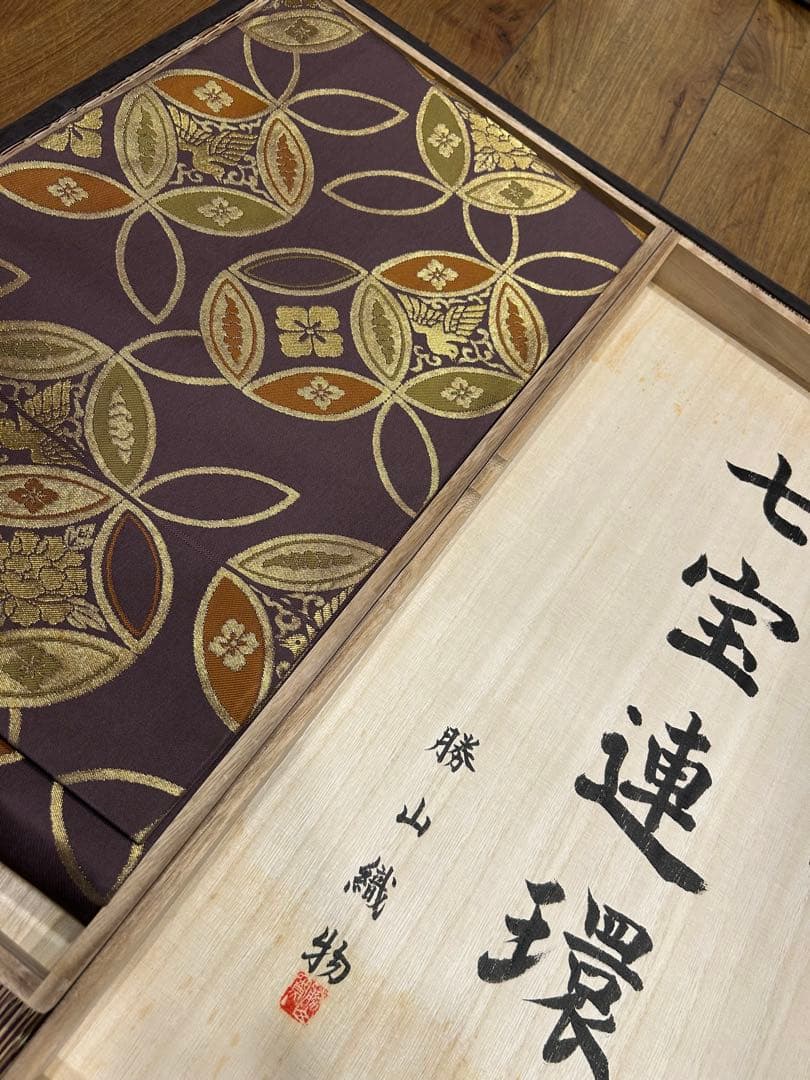 七宝連環
勝山織物